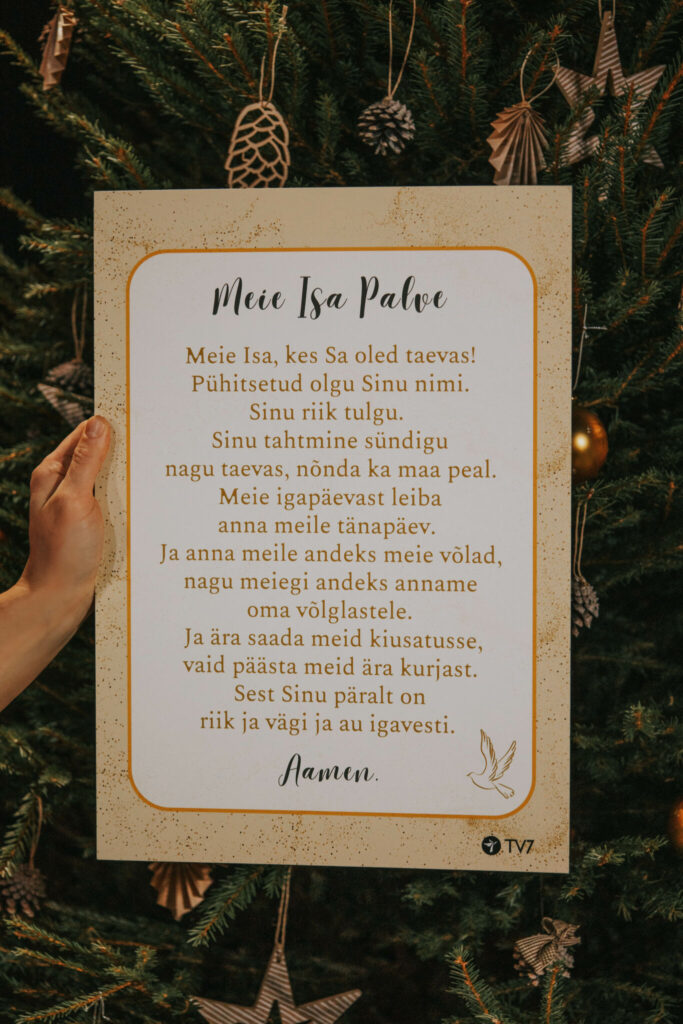 Meie Isa Palve
Meie Isa, kes Sa oled taevas!
Pühitsetud olgu Sinu nimi.
Sinu riik tulgu.
Sinu tahtmine sündigu
nagu taevas, nõnda ka maa peal.
Meie igapäevast leiba
anna meile tänapäev.
Ja anna meile andeks meie võlad,
nagu meiegi andeks anname
oma võlglastele.
Ja ära saada meid kiusatusse,
vaid päästa meid ära kurjast.
Sest Sinu päralt on
riik ja vägi ja au igavesti.
Aamen.
TV7